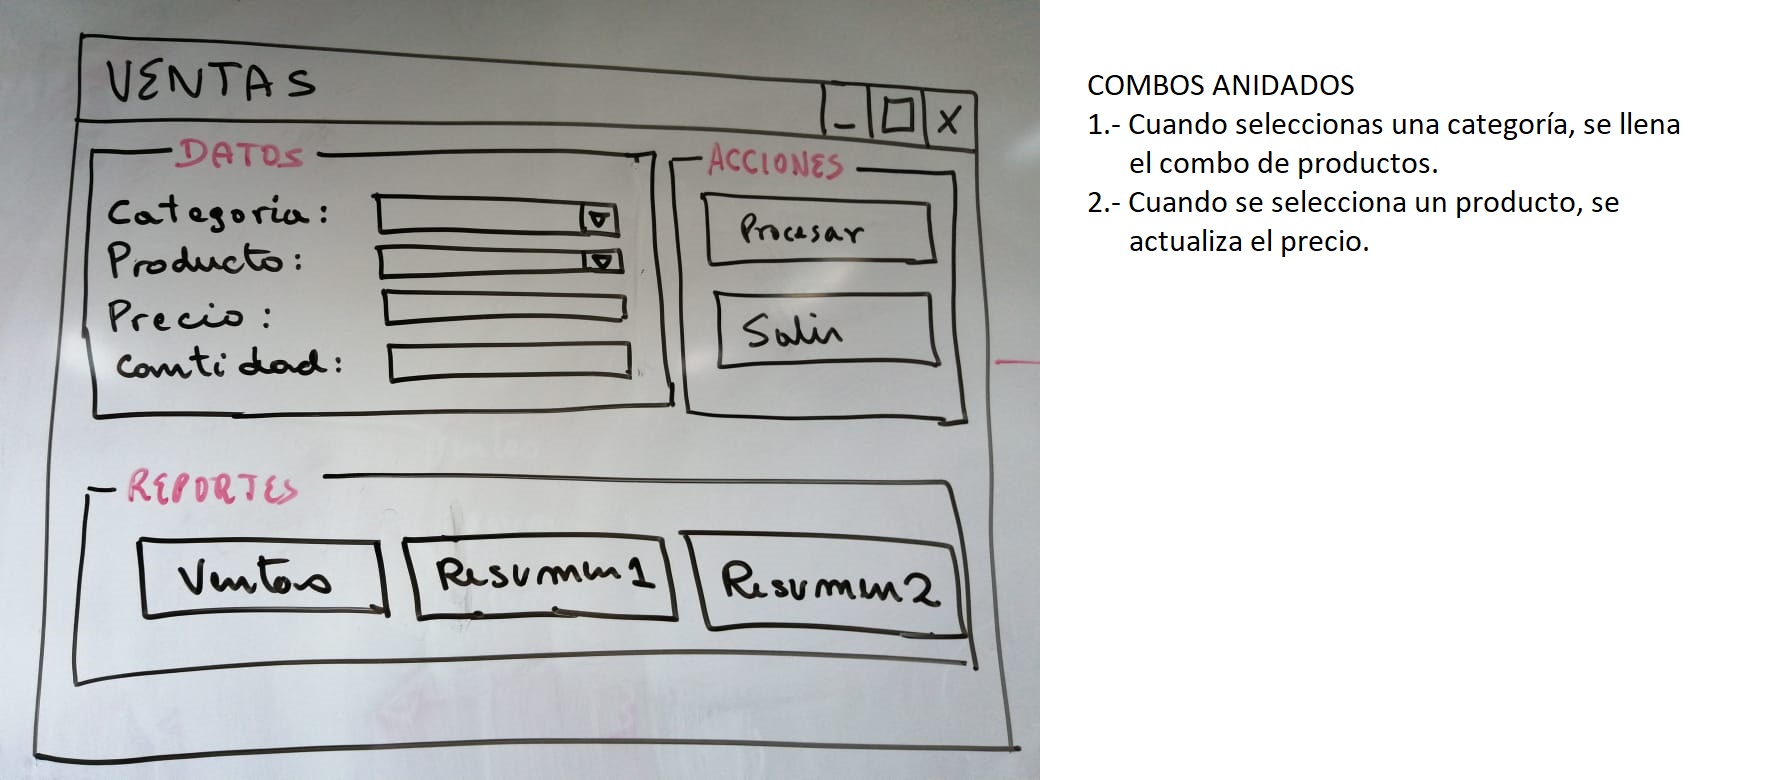 VENTAS
_ □ X
DATOS
Categoria:
Producto:
Precio:
Cantidad:
ACCIONES
Procesar
Salir
REPORTES
Ventas
Resumen1
Resumen2
COMBOS ANIDADOS
1.- Cuando seleccionas una categoría, se llena
el combo de productos.
2.- Cuando se selecciona un producto, se
actualiza el precio.